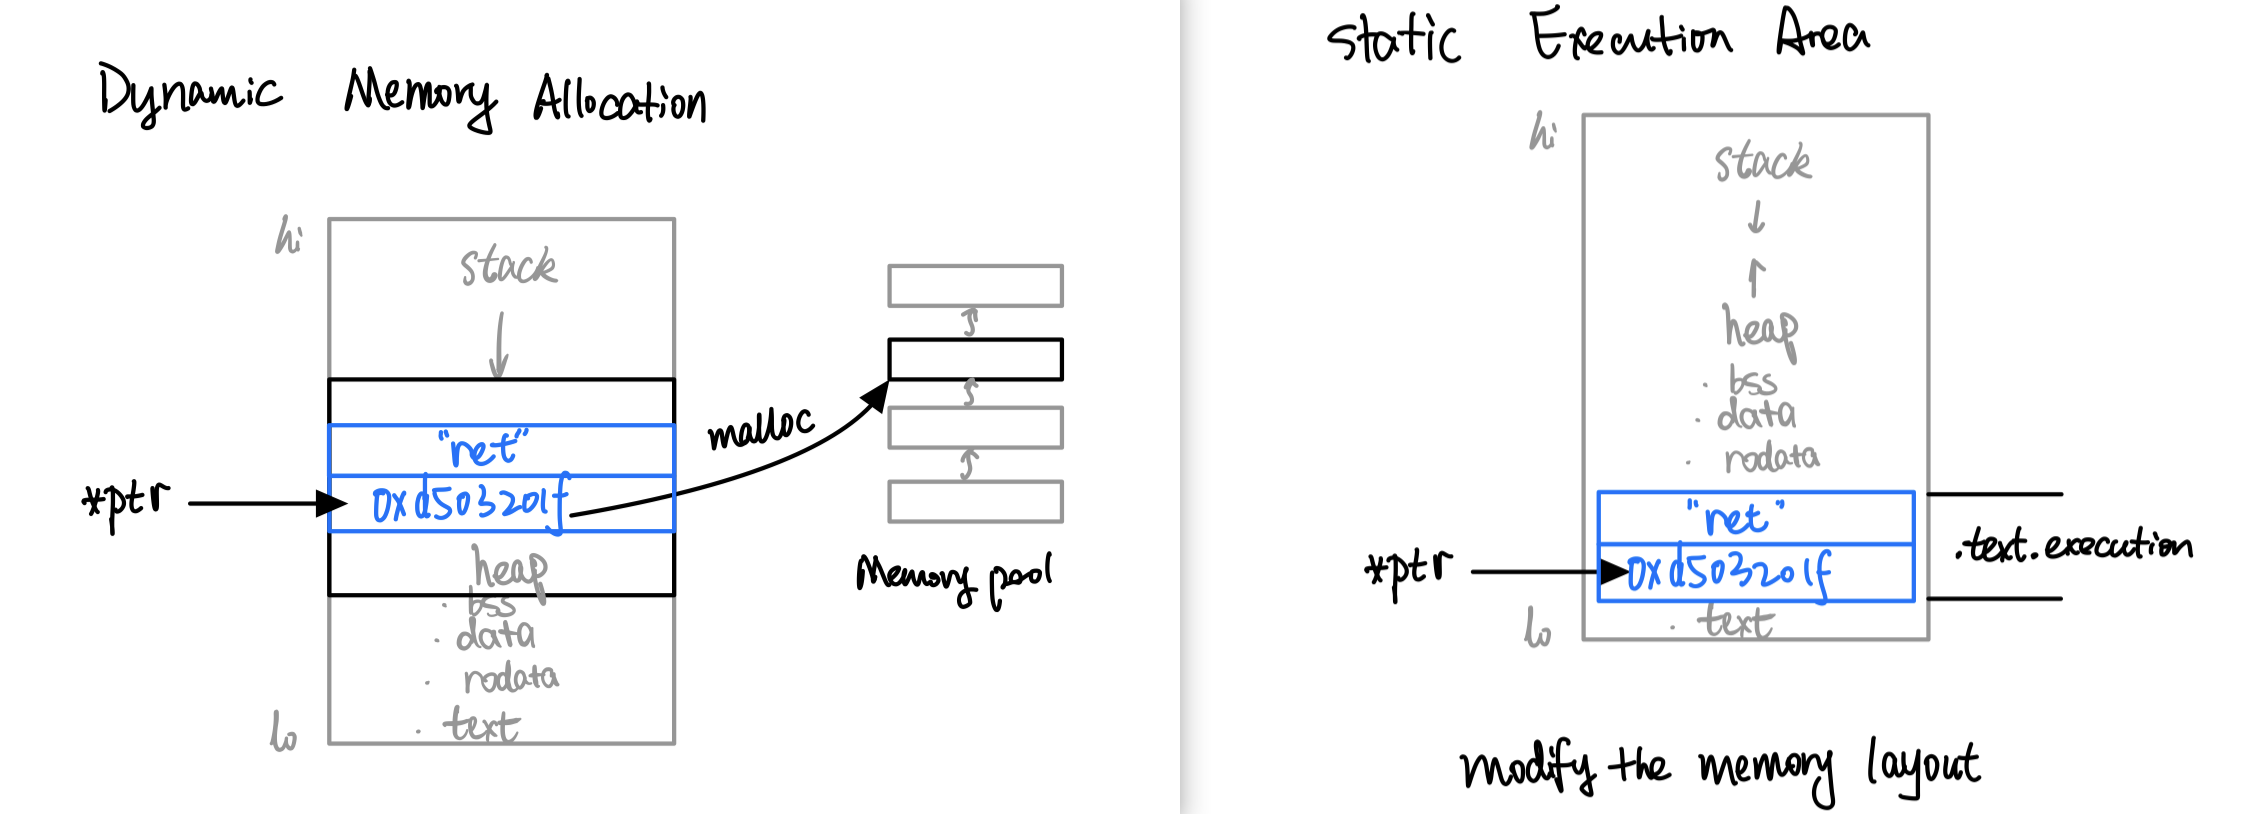 Dynamic Memory Allocation
hi
stack
"ret"
*ptr
0xd503201f
malloc
heap
. bss
. data
. rodata
lo
. text
Memory pool
static Execution Area
hi
stack
heap
. bss
. data
. rodata
"ret"
*ptr
0xd503201f
.text.execution
lo
. text
modify the memory layout